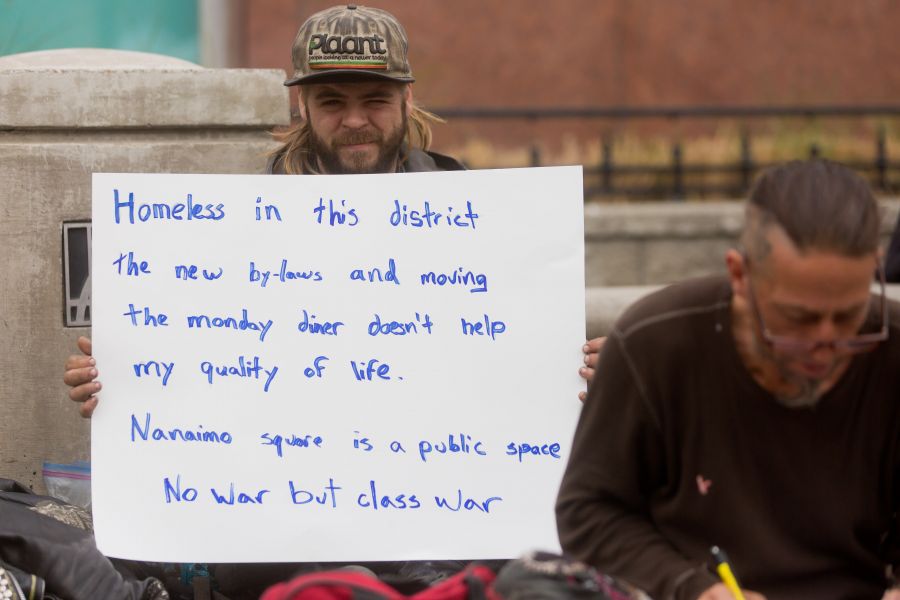 Plaant
people looking at a newer today
Homeless in this district
the new by-laws and moving
the monday diner doesn't help
my quality of life.
Nanaimo square is a public space
No war but class war